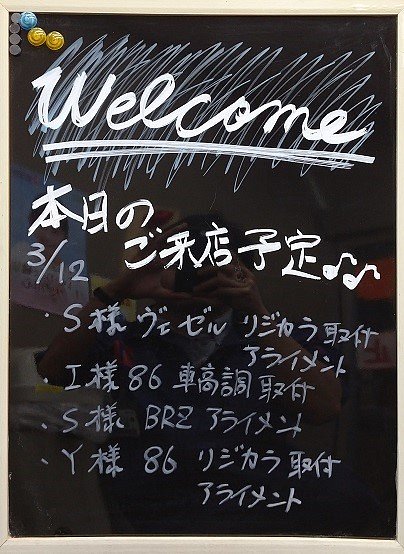 Welcome
本日の
ご来店予定♪♫
3/12
・S様 ヴェゼル リジカラ取付
アライメント
・I様 86 車高調取付
・S様 BRZ アライメント
・Y様 86 リジカラ取付
アライメント